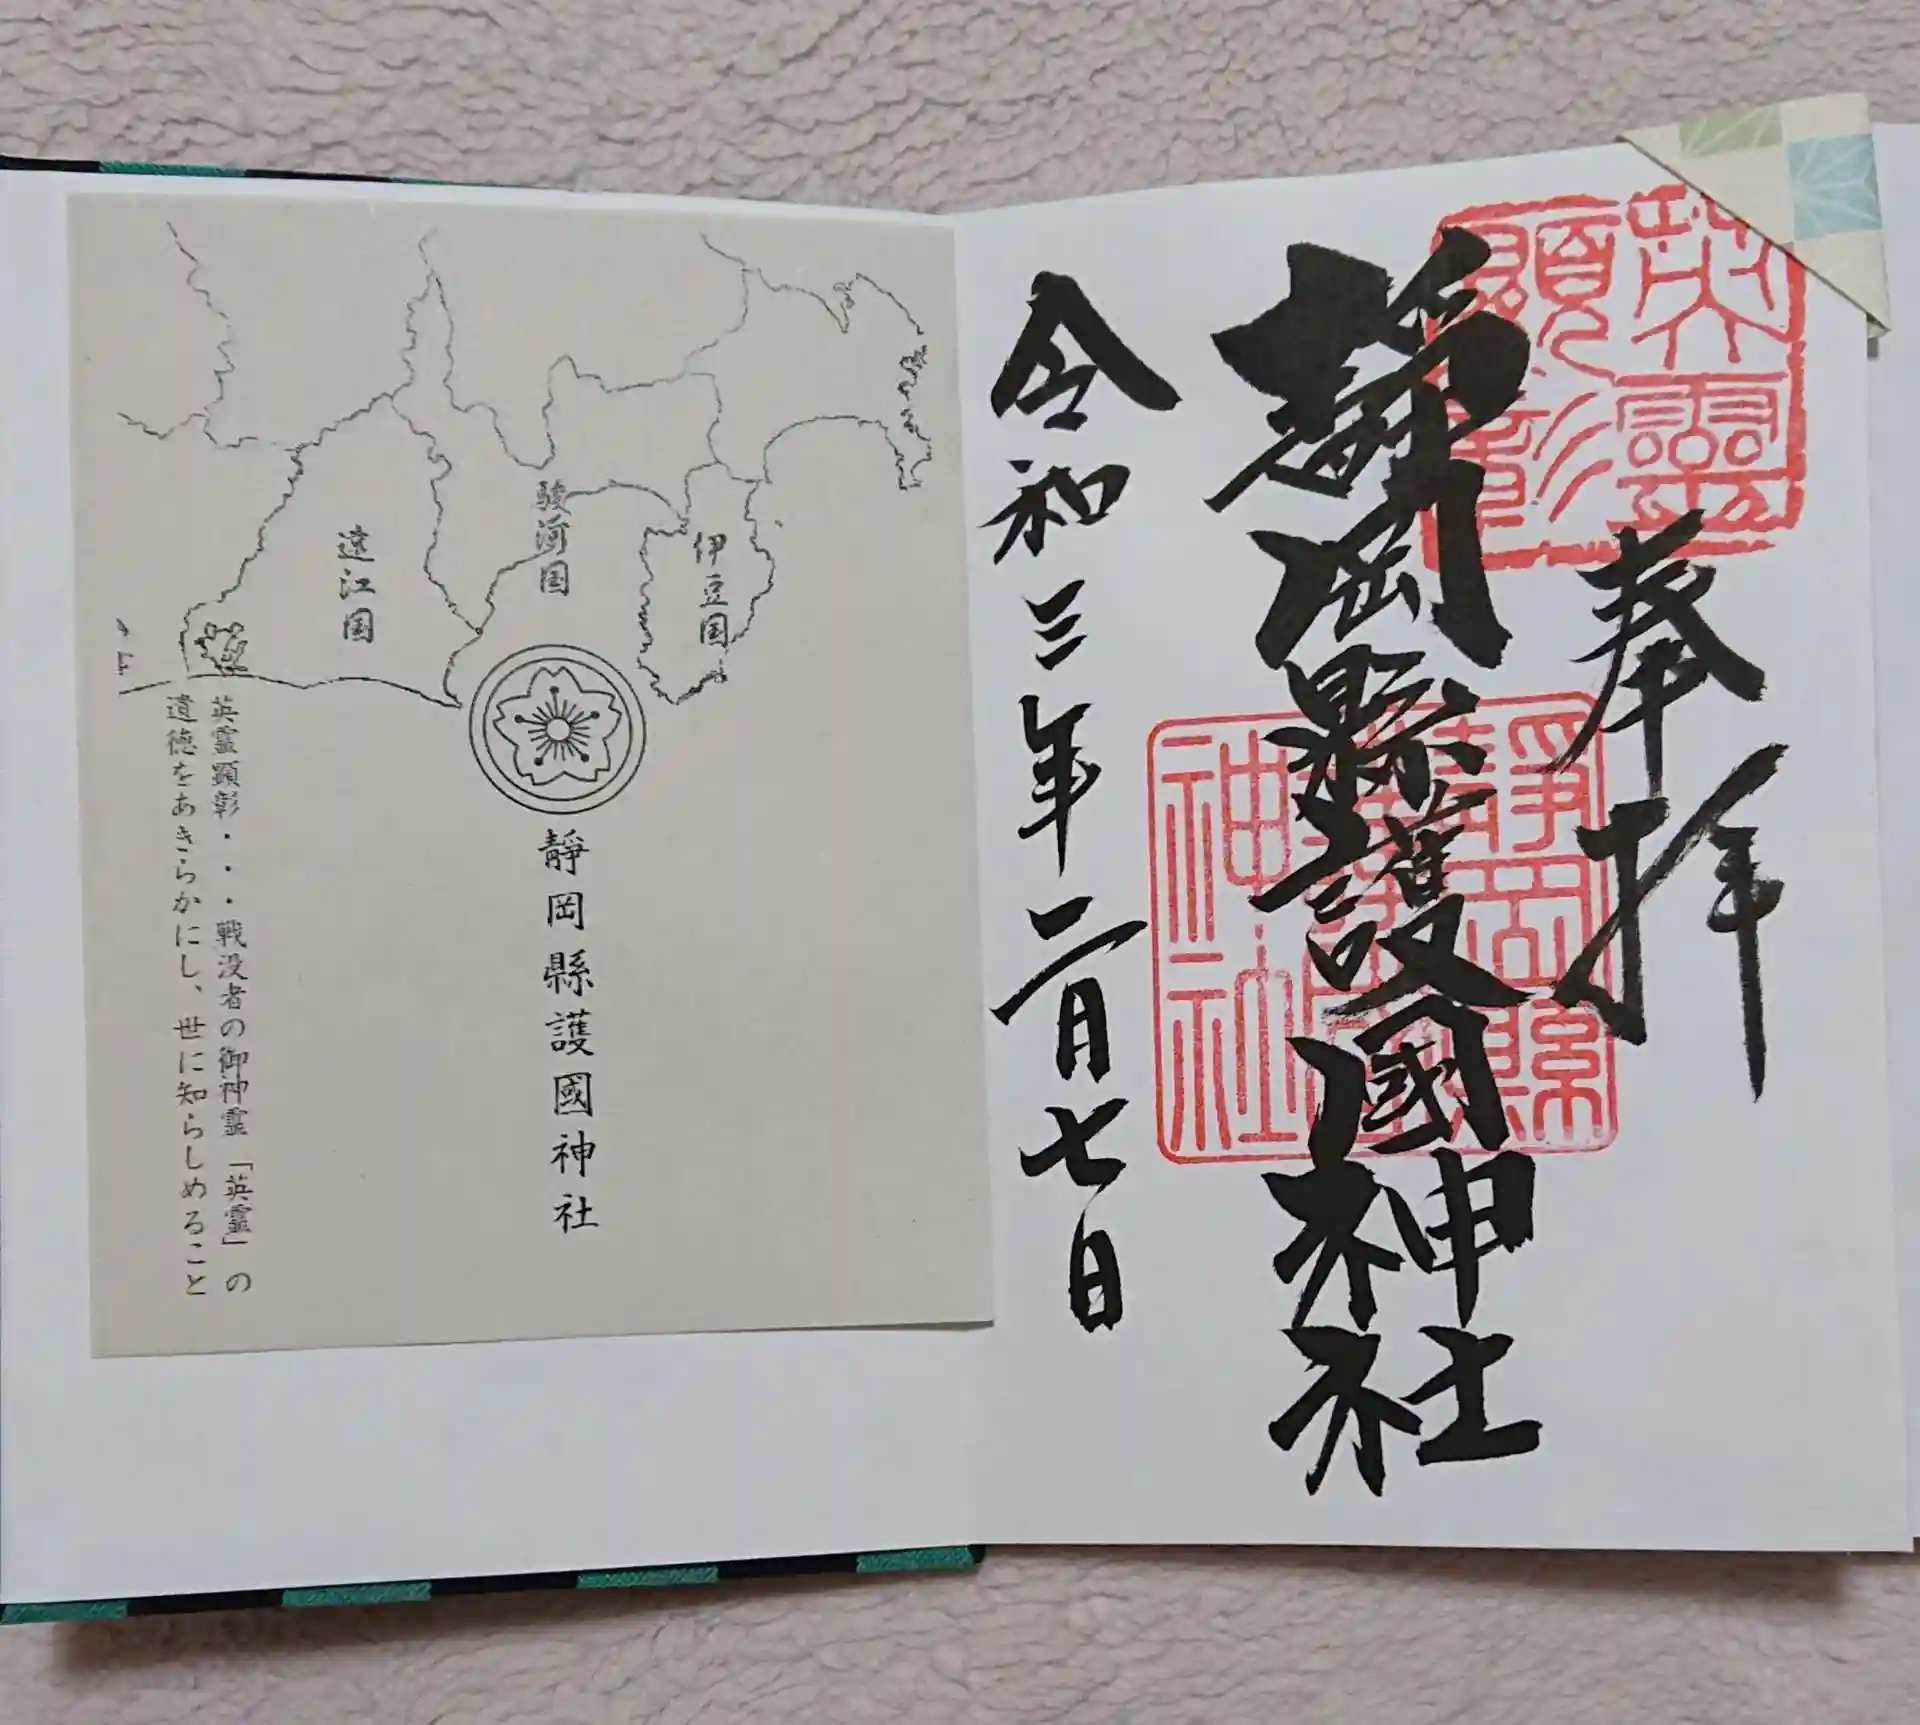 奉拝
靜岡縣護國神社
令和三年二月七日
英靈
顕彰
靜岡縣
護國
神社
伊豆国
駿河国
遠江国
靜岡縣護國神社
英霊顕彰・・・戦没者の御神霊「英霊」の
遺徳をあきらかにし、世に知らしめること